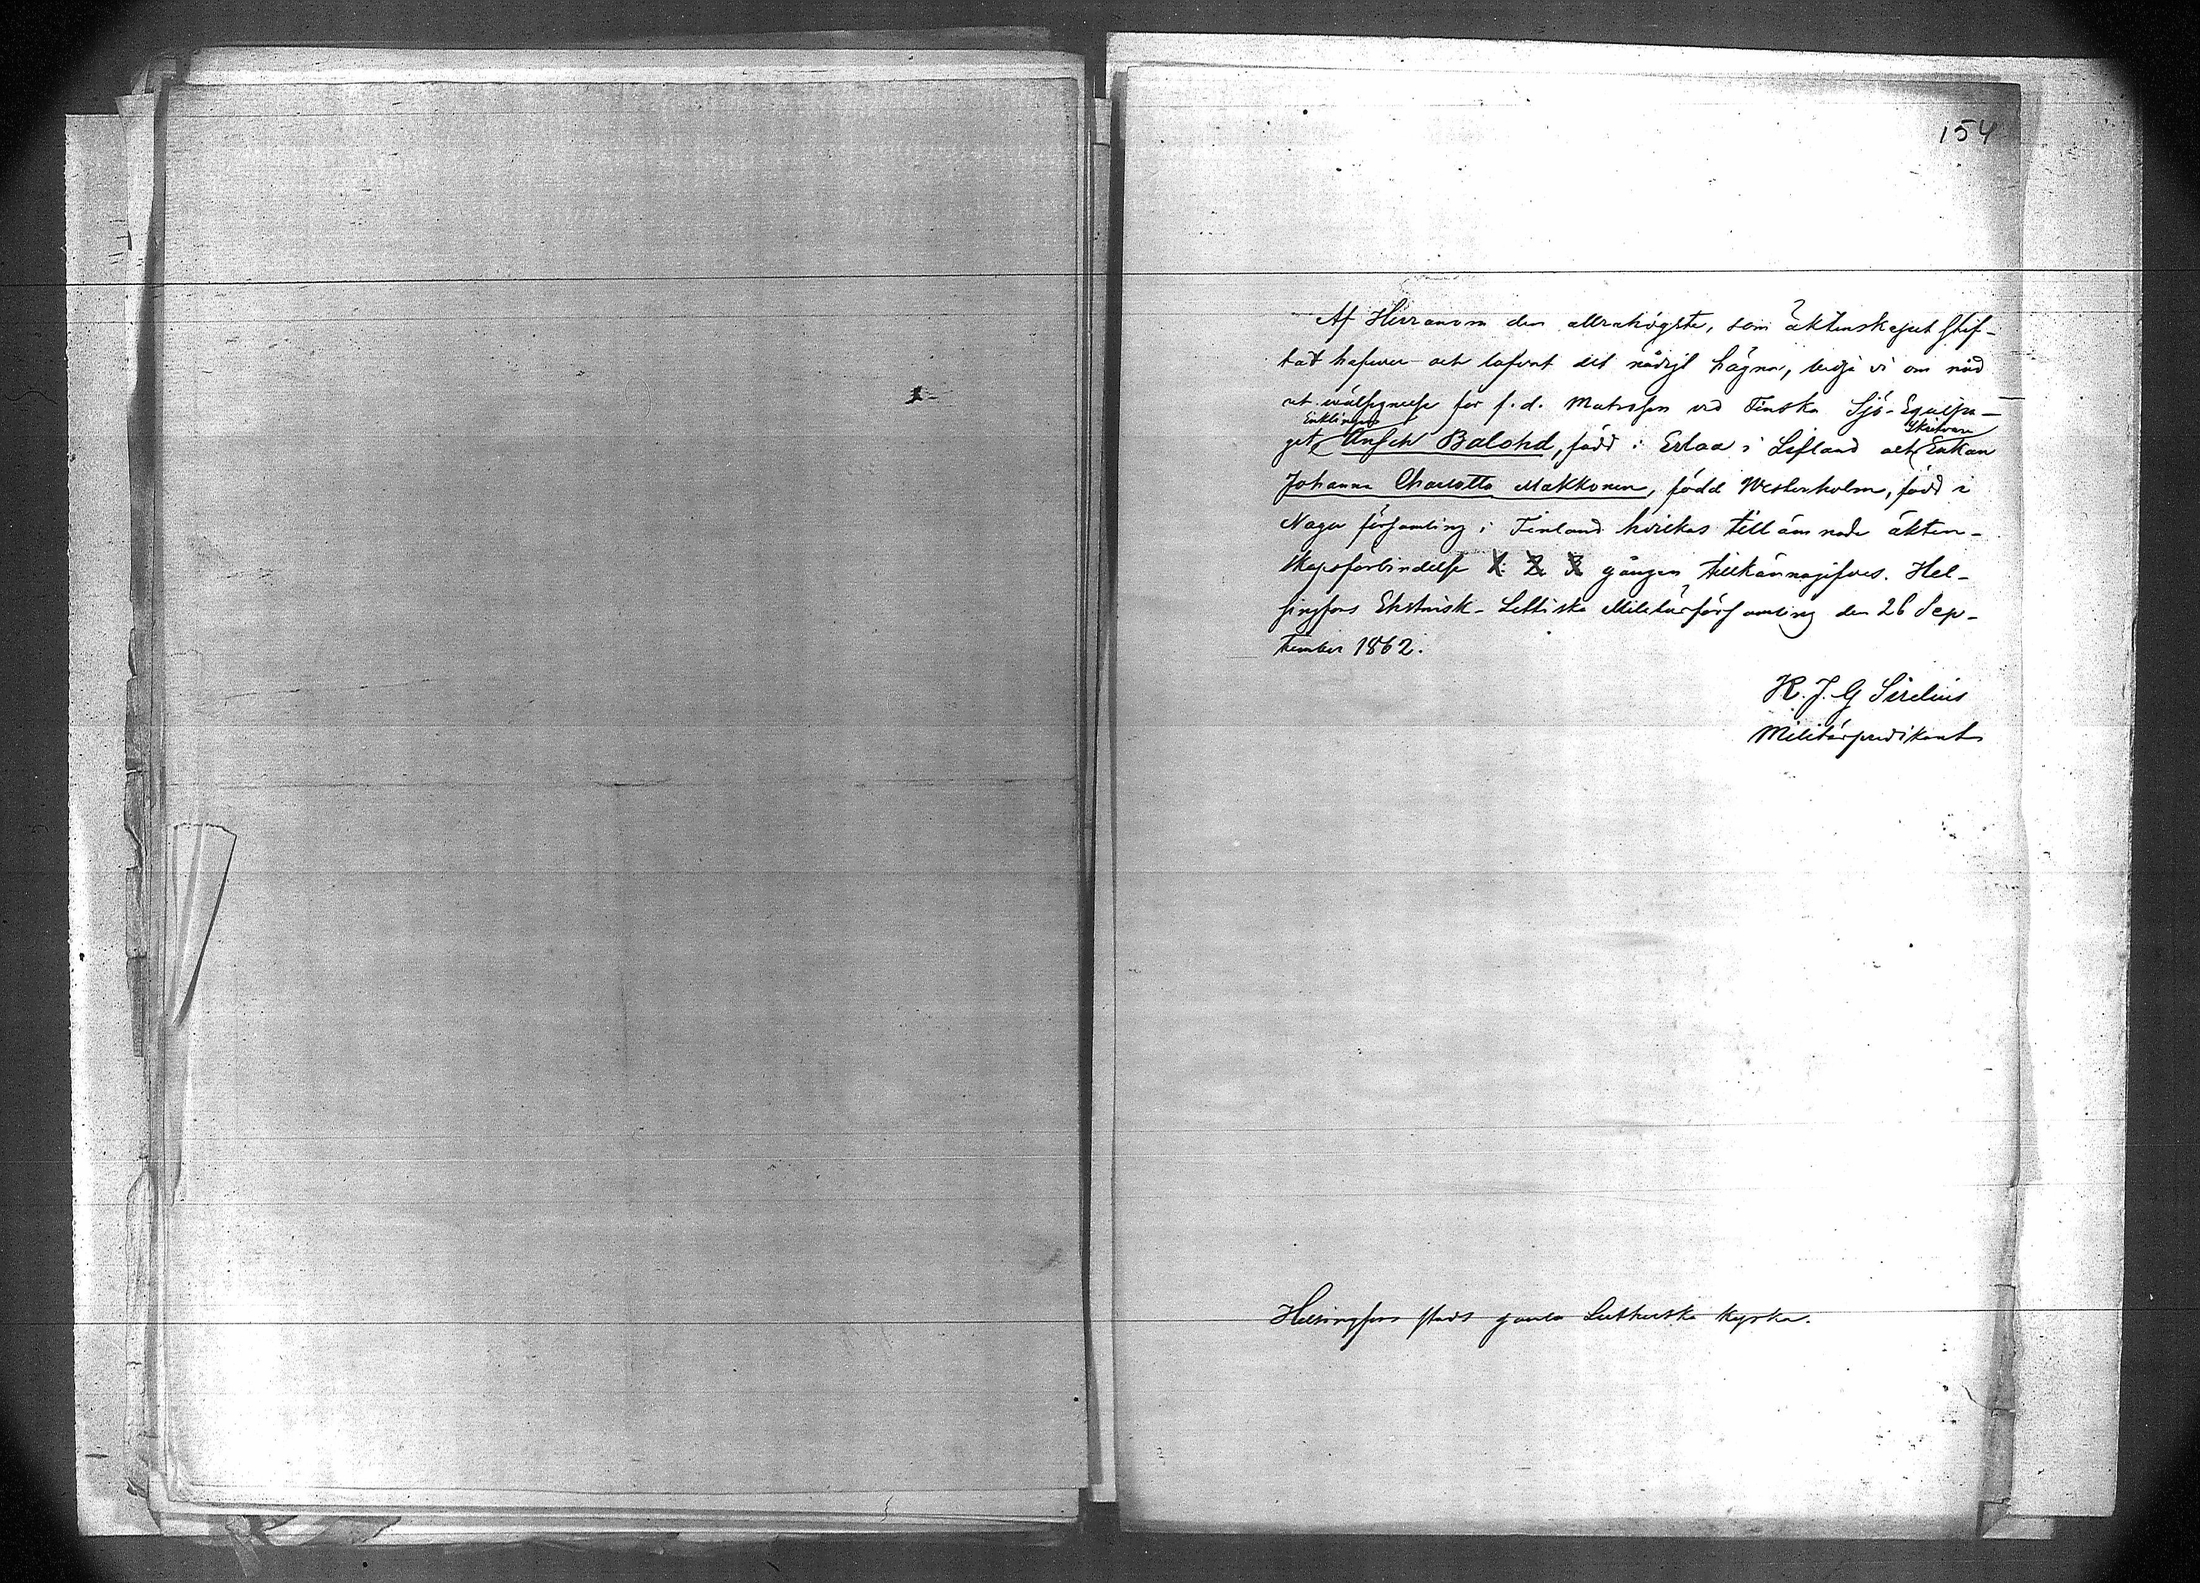 154
Af Herranom den allrahögste, som äktenskapet stif-
tat hafver och lofvat det nådigt hägna, bedja vi om nåd
och wälsignelse för f. d. Matrosen vid Finska Sjö-Equipa-
Enklingen Skräddare
get Ansch Balohd, född i Erlaa i Lifland och Enkan
Johanna Charlotta Makkonen, född Westerholm, född i
Nagu församling i Finland hvilkas tillämnade äkten-
skapsförbindelse 1. 2. 3 gången tillkännagifves. Hel-
singfors Ehstnisk-Lettiska Militärförsamling den 26 Sep-
tember 1862.
K. J. G Sirelius
Militärpredikant
Helsingfors stads gamla Lutherska kyrka.